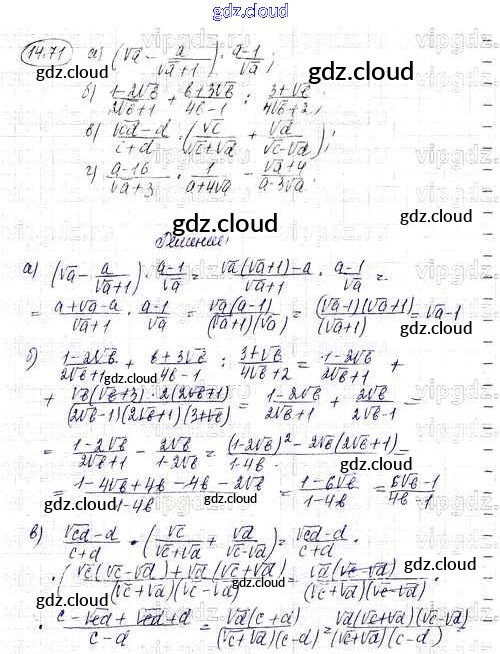 gdz.cloud
14.71 а) (√a − a/(√a+1)) · (a−1)/√a;
gdz.cloud gdz.cloud
б) (1−2√b)/(2√b+1) + (b+3√b)/(4b−1) : (3+√b)/(4√b+2);
в) (√cd−d)/(c+d) · (√c/(√c+√d) + √d/(√c−√d));
г) (a−16)/(√a+3) · 1/(a+4√a) − (√a+4)/(a−3√a)
gdz.cloud
Решение:
а) (√a − a/(√a+1)) · (a−1)/√a = (√a(√a+1)−a)/(√a+1) · (a−1)/√a =
gdz.cloud gdz.cloud
= (a+√a−a)/(√a+1) · (a−1)/√a = (√a(a−1))/((√a+1)(√a)) = ((√a−1)(√a+1))/(√a+1) = √a−1
б) (1−2√b)/(2√b+1) + (b+3√b)/(4b−1) : (3+√b)/(4√b+2) = (1−2√b)/(2√b+1) +
gdz.cloud
+ (√b(√b+3)·2(2√b+1))/((2√b−1)(2√b+1)(3+√b)) = (1−2√b)/(2√b+1) + 2√b/(2√b−1) =
gdz.cloud gdz.cloud
= (1−2√b)/(2√b+1) − 2√b/(1−2√b) = ((1−2√b)²−2√b(2√b+1))/(1−4b) =
gdz.cloud
= (1−4√b+4b−4b−2√b)/(1−4b) = (1−6√b)/(1−4b) = (6√b−1)/(4b−1)
gdz.cloud gdz.cloud
в) (√cd−d)/(c+d) · (√c/(√c+√d) + √d/(√c−√d)) = (√cd−d)/(c+d) ·
gdz.cloud
· (√c(√c−√d)+√d(√c+√d))/((√c+√d)(√c−√d)) = (√d(√c−√d))/((√c+√d)(√c−√d)) ·
gdz.cloud gdz.cloud
· (c−√cd+√cd+d)/(c−d) = (√d(c+d))/((√c+√d)(c−d)) = (√d(√c+√d)(√c−√d))/((√c+√d)(c−d)) =
gdz.cloud